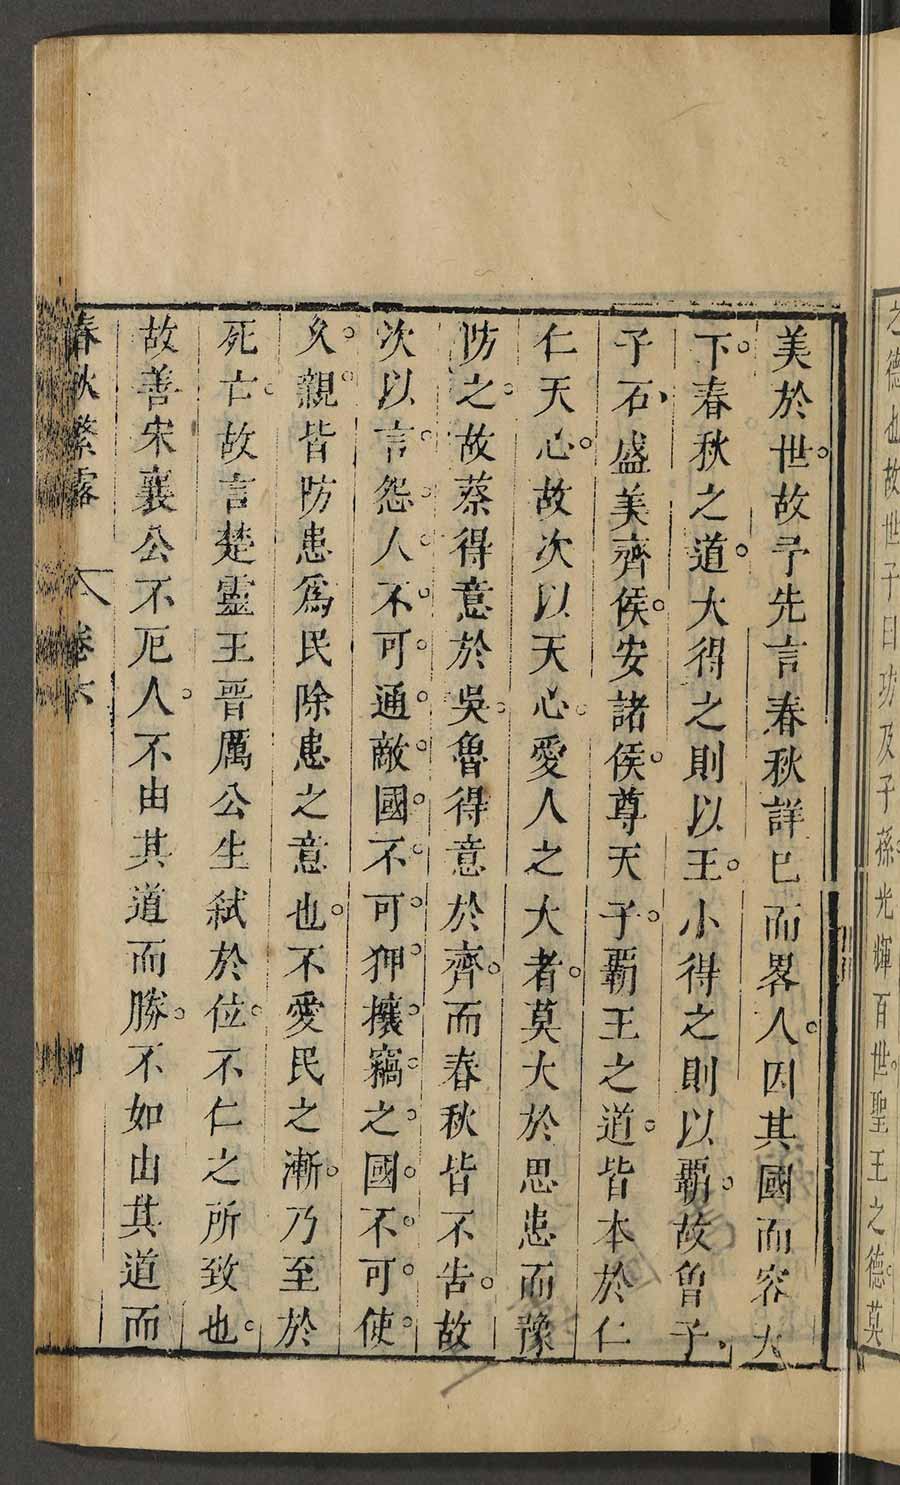 之德也故世子曰功及子孫光輝百世聖王之德莫
美於世故予先言春秋詳己而畧人因其國而容天
下春秋之道大得之則以王小得之則以覇故曽子
子石盛美齊侯安諸侯尊天子覇王之道皆本於仁
仁天心故次以天心愛人之大者莫大於思患而豫
防之故蔡得意於吳魯得意於齊而春秋皆不告故
次以言怨人不可通敵國不可狎攘竊之國不可使
久親皆防患爲民除患之意也不愛民之漸乃至於
死亡故言楚靈王晋厲公生弑於位不仁之所致也
故善宋襄公不厄人不由其道而勝不如由其道而
春秋繁露 卷六